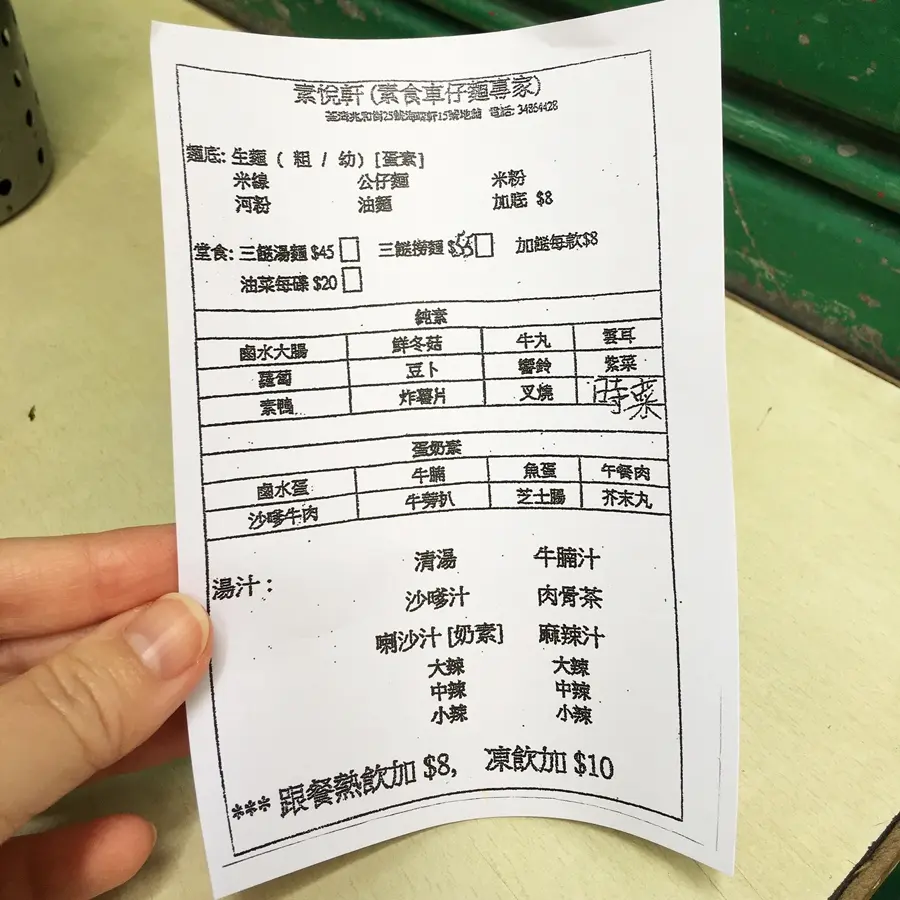 素悅軒 (素食車仔麵專家)
荃灣兆和街25號海晴軒15號地舖 電話: 34864428
麵底: 生麵 ( 粗 / 幼) [蛋素]
米線 公仔麵 米粉
河粉 油麵 加底 $8
堂食: 三餸湯麵 $45 三餸撈麵 加餸每款$8
油菜每碟 $20
純素
鹵水大腸 鮮冬菇 牛丸 雲耳
蘿蔔 豆卜 響鈴 紫菜
素鴨 炸薯片 叉燒 時菜
蛋奶素
鹵水蛋 牛腩 魚蛋 午餐肉
沙嗲牛肉 牛蒡扒 芝士腸 芥末丸
湯汁:
清湯 牛腩汁
沙嗲汁 肉骨茶
喇沙汁 [奶素] 麻辣汁
大辣 大辣
中辣 中辣
小辣 小辣
*** 跟餐熱飲加 $8, 凍飲加 $10